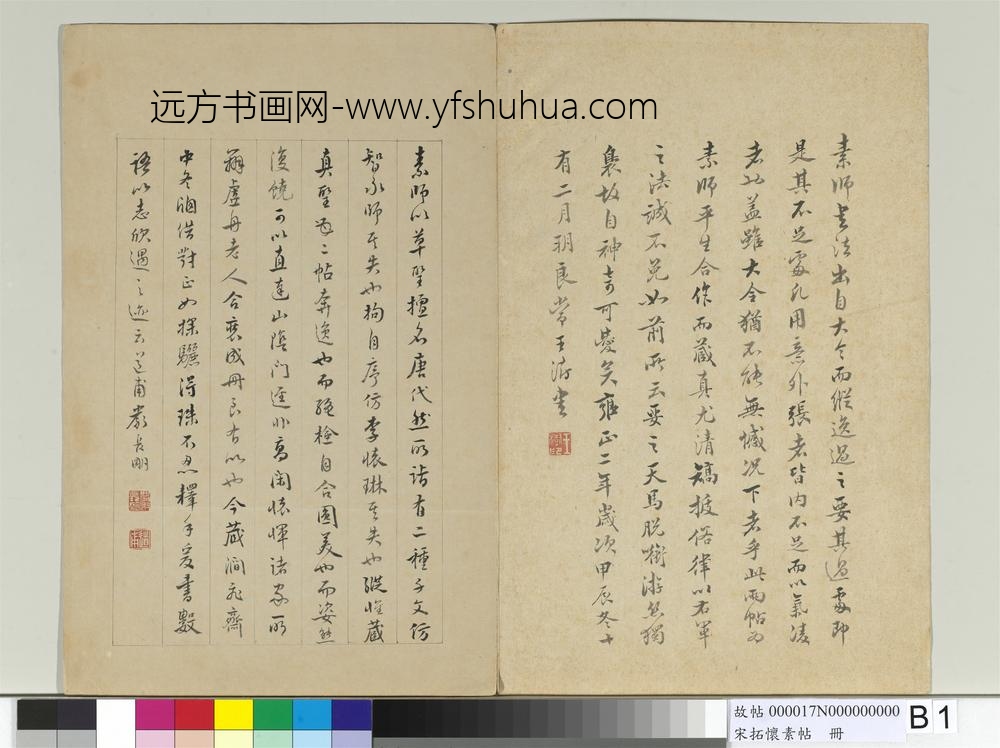 远方书画网-www.yfshuhua.com
素師書法出自大令而縱逸過之要其過處即
是其不足處凡用意外張者皆内不足而以氣凌
者也蓋雖大令猶不能無憾況下者乎此兩帖為
素師平生合作而藏真尤清矯披俗律以右軍
之法誠不免如前所云要之天馬脱銜游絲獨
裊故自神奇可愛矣雍正二年歲次甲辰冬十
有二月朔良常王澍書
素師以草聖擅名唐代然所詣有二種千文仿
智永師其失也拘自序仿李懷琳其失也縱惟藏
真聖母二帖奔逸也而능檢自合圓美也而姿態
復饒可以直達山陰門逕非高閑懷惲諸家所
辦虛舟老人合裒成冊良有以也今藏澗飛齋
中冬涸借對正如探驪得珠不忍釋手爰書數
語以志欣遇之迹云道甫嚴長明
故帖 000017N000000000
宋拓懷素帖 冊
B 1